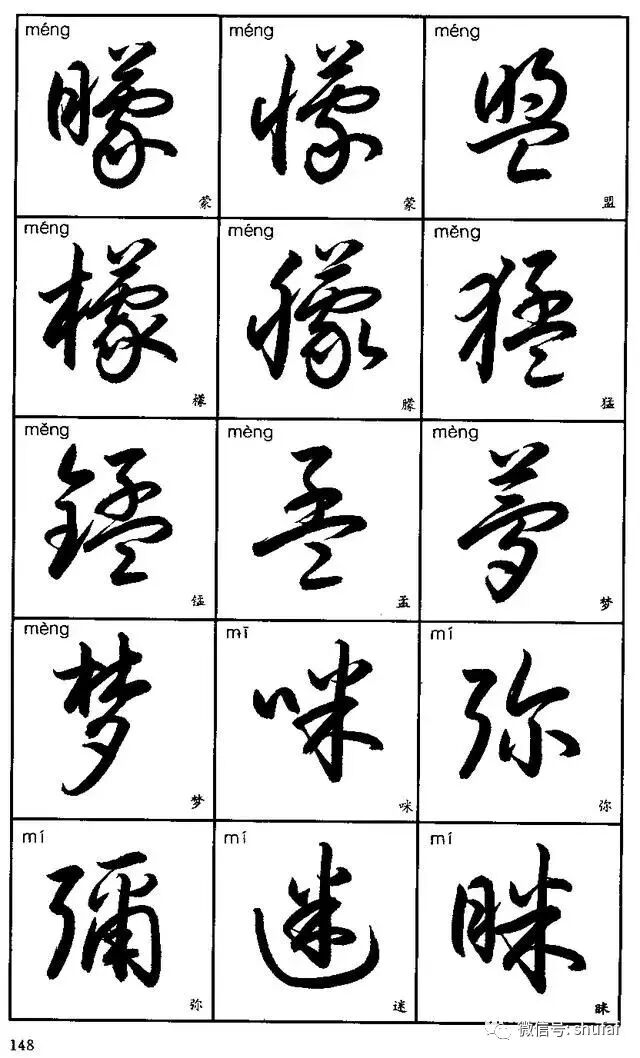 méng méng méng
矇 懞 盟
蒙 蒙 盟
méng méng měng
檬 朦 猛
檬 朦 猛
měng mèng mèng
錳 孟 夢
锰 孟 梦
mèng mī mí
梦 咪 弥
梦 咪 弥
mí mí mí
彌 迷 眯
弥 迷 眯
148
微信号: shufaf